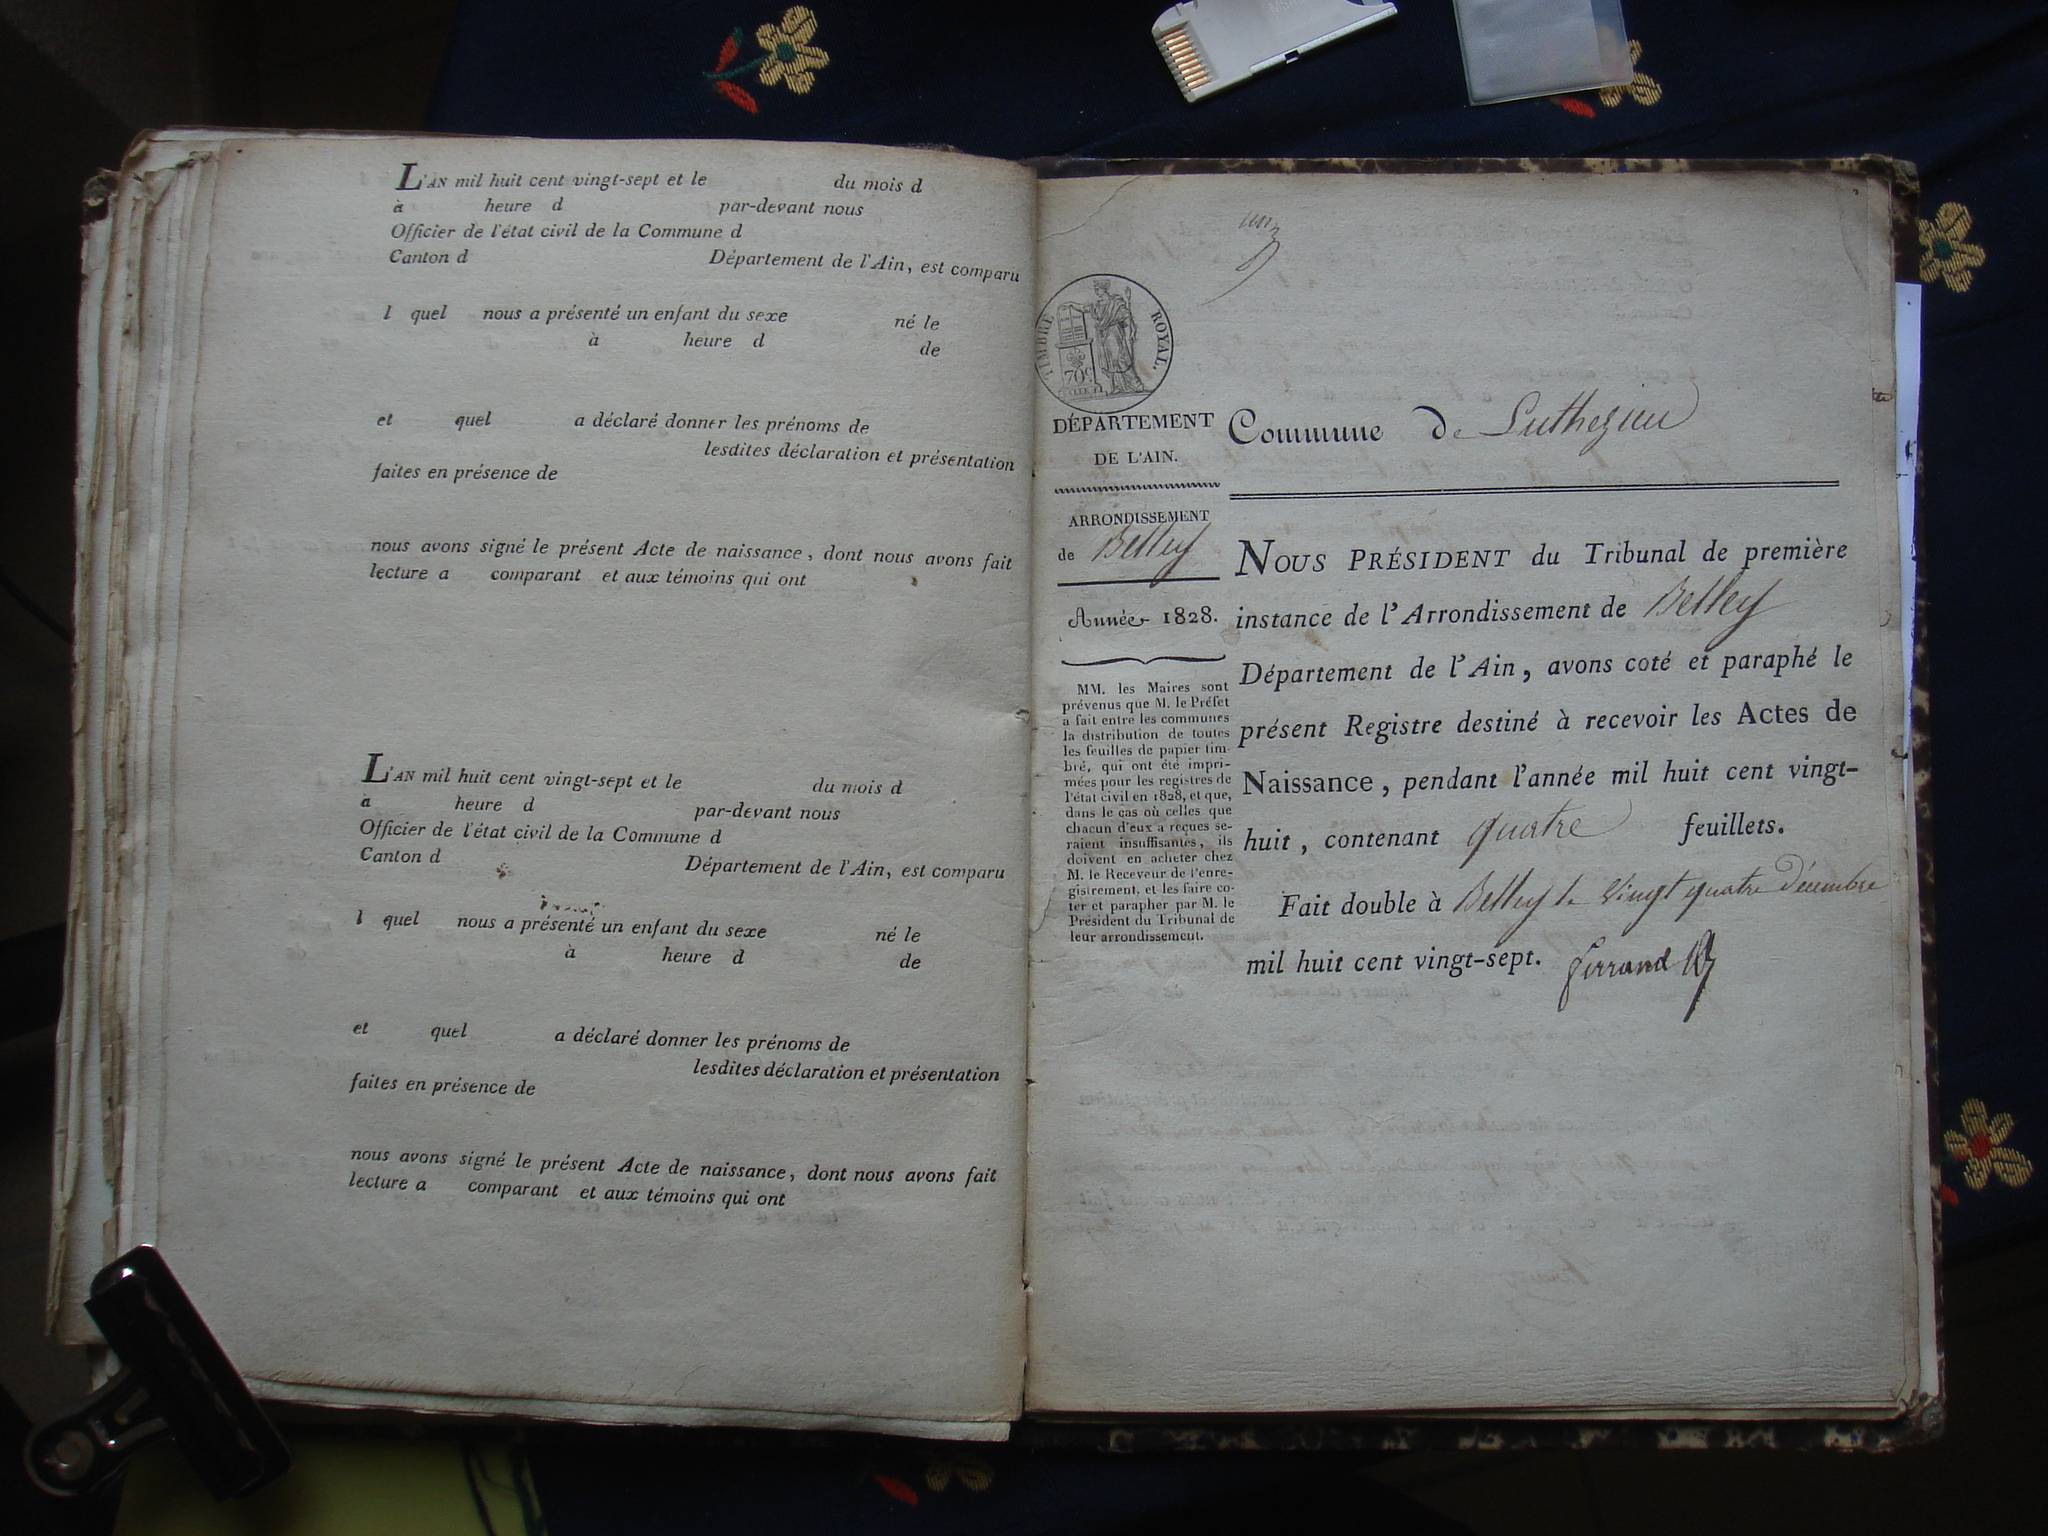 L'AN mil huit cent vingt-sept et le du mois d
à heure d par-devant nous
Officier de l'état civil de la Commune d
Canton d Département de l'Ain, est comparu
l quel nous a présenté un enfant du sexe né le
à heure d de
et quel a déclaré donner les prénoms de
lesdites déclaration et présentation
faites en présence de
nous avons signé le présent Acte de naissance, dont nous avons fait
lecture a comparant et aux témoins qui ont
L'AN mil huit cent vingt-sept et le du mois d
à heure d par-devant nous
Officier de l'état civil de la Commune d
Canton d Département de l'Ain, est comparu
l quel nous a présenté un enfant du sexe né le
à heure d de
et quel a déclaré donner les prénoms de
lesdites déclaration et présentation
faites en présence de
nous avons signé le présent Acte de naissance, dont nous avons fait
lecture a comparant et aux témoins qui ont
un
TIMBRE ROYAL.
70c
DÉPARTEMENT
DE L'AIN.
ARRONDISSEMENT
de Belley
Année 1828.
MM. les Maires sont
prévenus que M. le Préfet
a fait entre les communes
la distribution de toutes
les feuilles de papier tim-
bré, qui ont été impri-
mées pour les registres de
l'état civil en 1828, et que,
dans le cas où celles que
chacun d'eux a reçues se-
raient insuffisantes, ils
doivent en acheter chez
M. le Receveur de l'enre-
gistrement, et les faire co-
ter et parapher par M. le
Président du Tribunal de
leur arrondissement.
Commune de Luthezieu
NOUS PRÉSIDENT du Tribunal de première
instance de l'Arrondissement de Belley
Département de l'Ain, avons coté et paraphé le
présent Registre destiné à recevoir les Actes de
Naissance, pendant l'année mil huit cent vingt-
huit, contenant quatre feuillets.
Fait double à Belley le vingt quatre Décembre
mil huit cent vingt-sept. ferrand